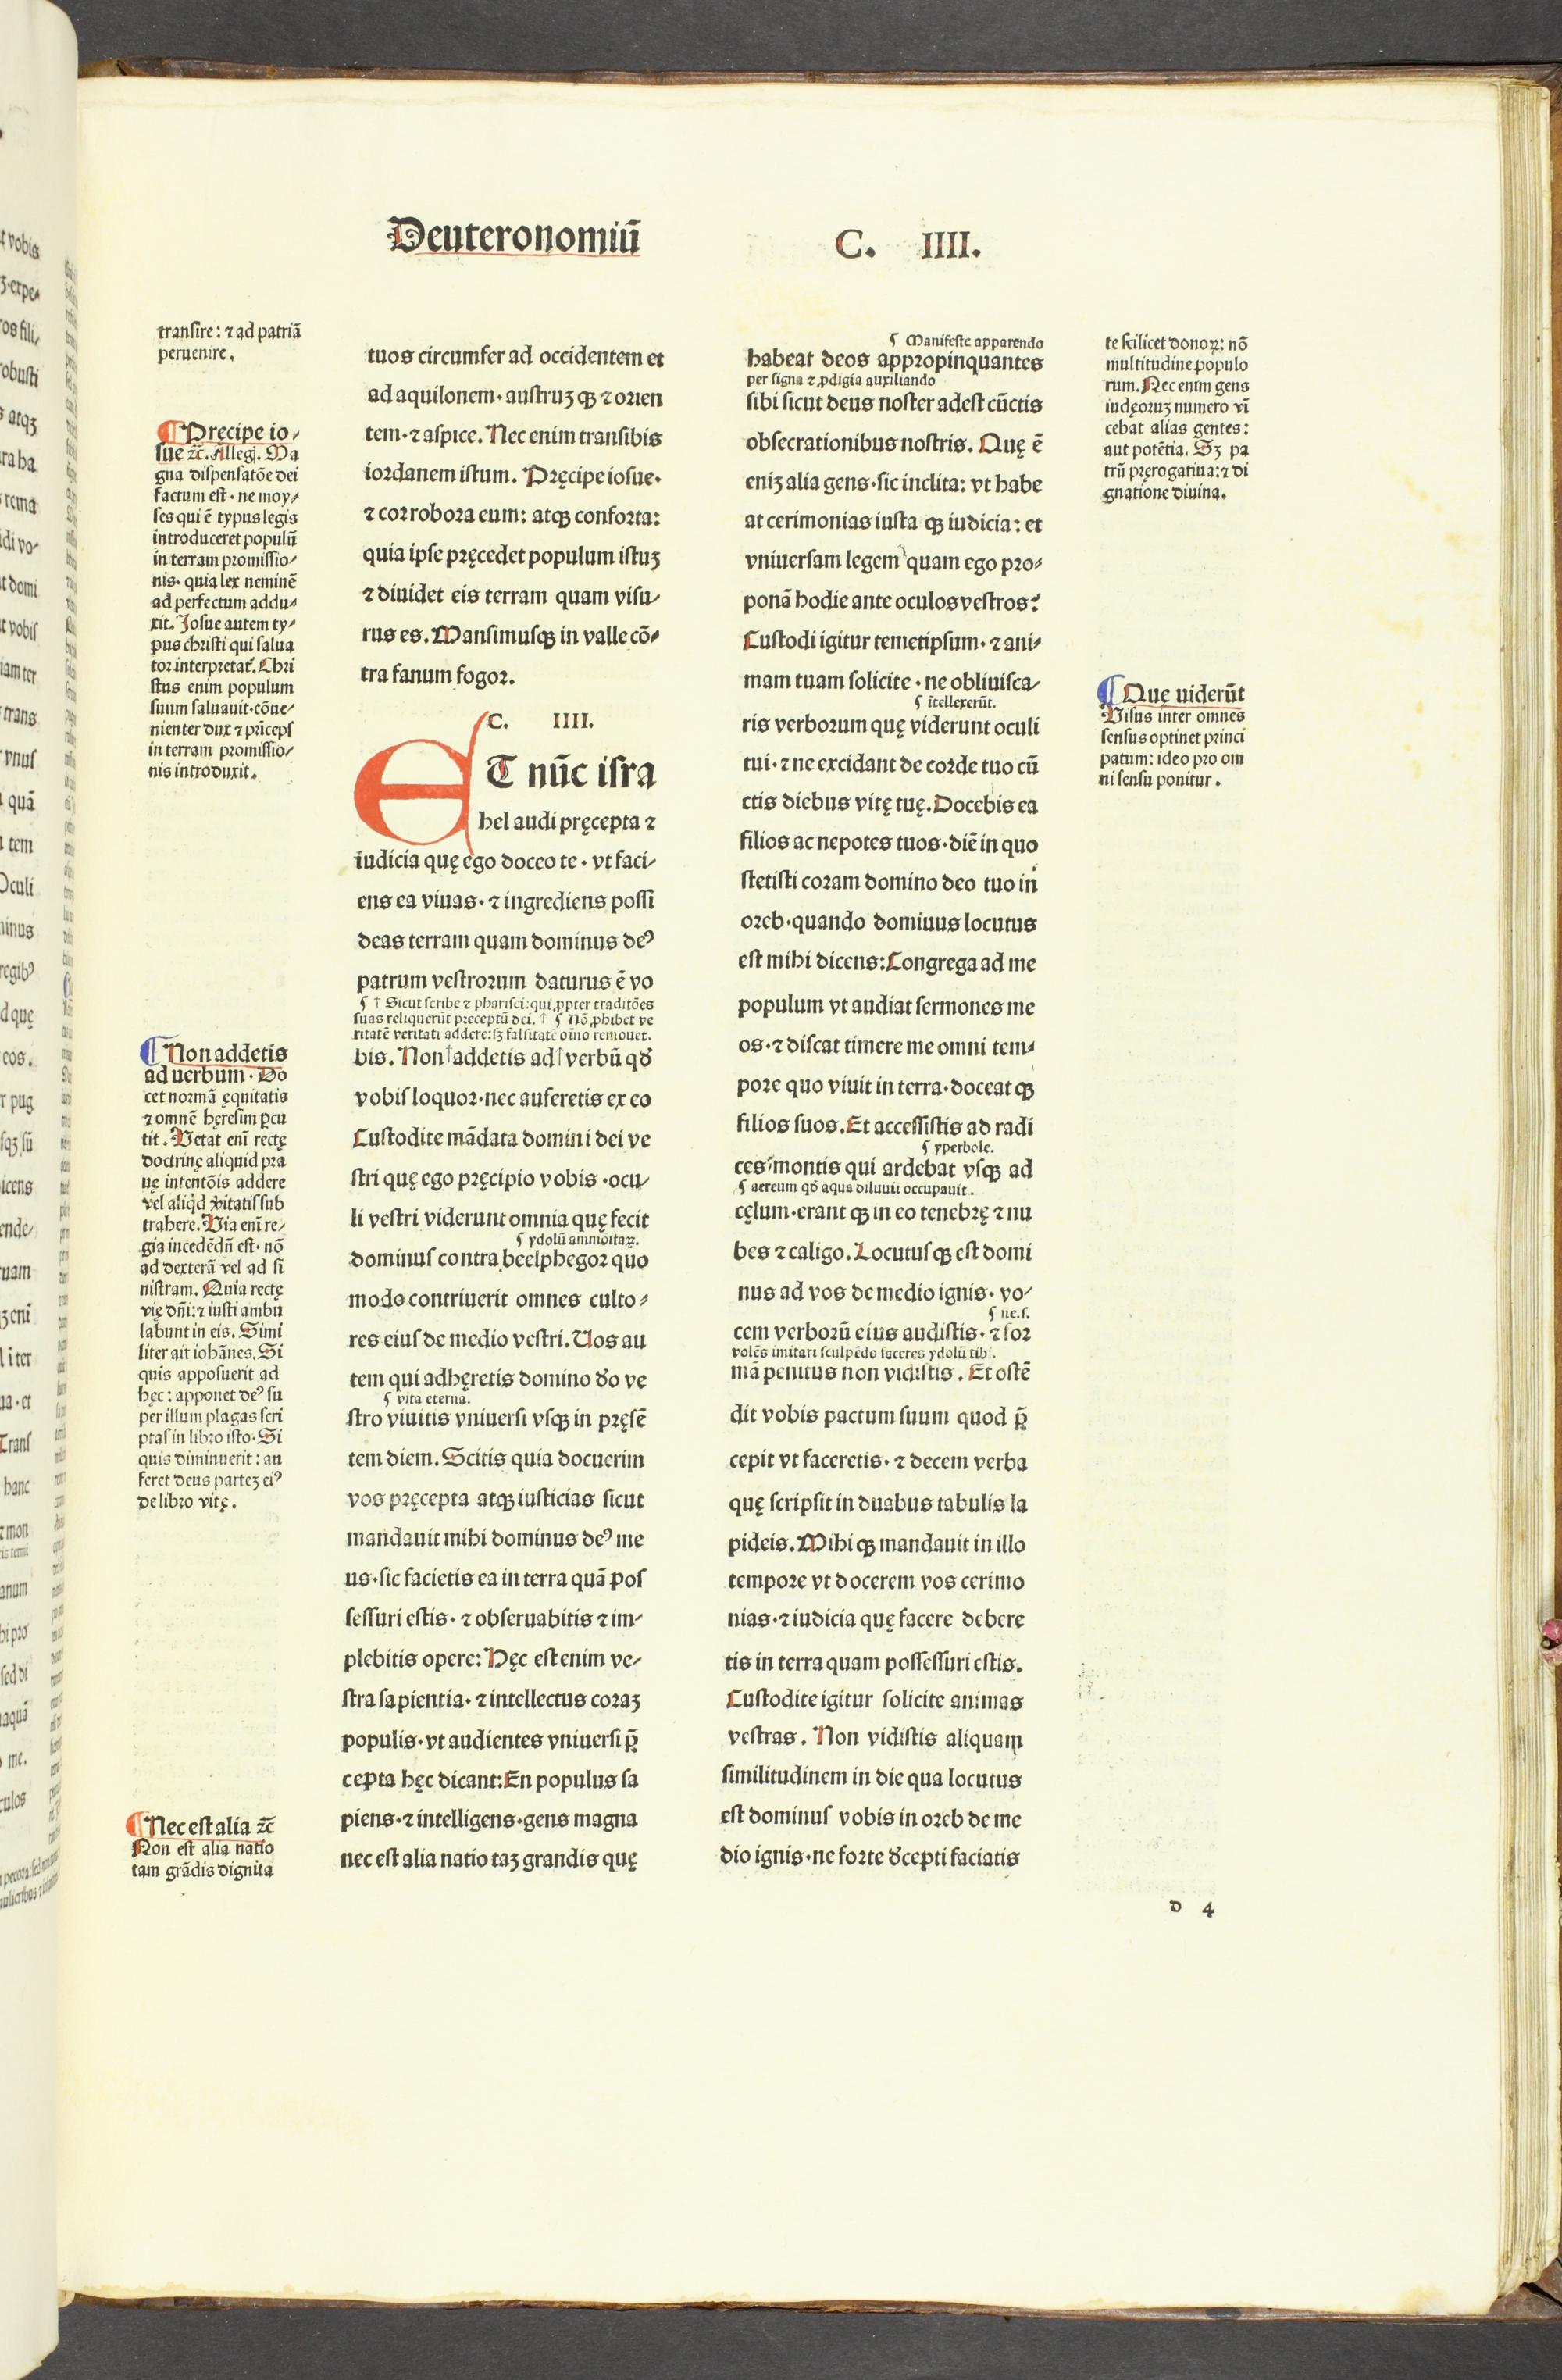 Deuteronomiū
C. IIII.
transire: ⁊ ad patriā
peruenire.
¶ Precipe io⸗
sue ⁊c̄. Alleg̃. Ma
gna dispensatōe dei
factum est · ne moy⸗
ses qui ē typus legis
introduceret populū
in terram promissio⸗
nis· quia lex neminē
ad perfectum addu⸗
xit. Josue autem ty⸗
pus christi qui salua
tor interpretat̃. Chri
stus enim populum
suum saluauit·cōue⸗
nienter dux ⁊ pr̄iceps
in terram promissio⸗
nis introduxit.
¶ Non addetis
ad uerbum · Do
cet normā ęquitatis
⁊ omnē hęresim ꝑcu
tit. Vetat enī rectę
doctrinę aliquid pra
uę intentōis addere
vel aliqd̓ v̓itatis sub
trahere. Via enī re⸗
gia incedēdū est· nō
ad dexterā vel ad si
nistram. Quia rectę
vię dn̄i: ⁊ iusti ambu
labunt in eis. Simi
liter ait iohānes. Si
quis apposuerit ad
hęc: apponet deꝰ su
per illum plagas scri
ptas in libro isto· Si
quis diminuerit: au
feret deus parteꝫ eiꝰ
de libro vitę.
¶ Nec est alia ⁊c̄
Non est alia natio
tam grādis dignita
tuos circumfer ad occidentem et
ad aquilonem· austruꝫ qꝫ ⁊ orien
tem·⁊ aspice. Nec enim transibis
iordanem istum. Pręcipe iosue·
⁊ corrobora eum: atqꝫ conforta:
quia ipse pręcedet populum istuꝫ
⁊ diuidet eis terram quam visu⸗
rus es. Mansimusqꝫ in valle cō⸗
tra fanum fogor.
C. IIII.
ET nūc isra
hel audi pręcepta ⁊
iudicia quę ego doceo te · vt faci⸗
ens ea viuas· ⁊ ingrediens possi
deas terram quam dominus deꝰ
patrum vestrorum daturus ē vo
¶ † Sicut scribe ⁊ pharisei: qui ꝓpter traditōes
suas reliquerūt preceptū dei. † ¶ Nō ꝓhibet ve
ritatē veritati addere: sꝫ falsitatē oīno remouet.
bis. Non † addetis ad † verbū qd̓
vobis loquor·nec auferetis ex eo
Custodite mādata domini dei ve
stri quę ego pręcipio vobis ·ocu⸗
li vestri viderunt omnia quę fecit
¶ ydolū ammoitaꝝ.
dominus contra beelphegor quo
modo contriuerit omnes culto⸗
res eius de medio vestri. Uos au
tem qui adhęretis domino d̓o ve
¶ vita eterna.
stro viuitis vniuersi vsqꝫ in pręsē
tem diem. Scitis quia docuerim
vos pręcepta atqꝫ iusticias sicut
mandauit mihi dominus deꝰ me
us·sic facietis ea in terra quā pos
sessuri estis· ⁊ obseruabitis ⁊ im⸗
plebitis opere: Hęc est enim ve⸗
stra sapientia· ⁊ intellectus coraꝫ
populis·vt audientes vniuersi p̄
cepta hęc dicant: En populus sa
piens·⁊ intelligens·gens magna
nec est alia natio taꝫ grandis quę
¶ Manifeste apparendo
habeat deos appropinquantes
per signa ⁊ ꝓdigia auxiliando
sibi sicut deus noster adest cūctis
obsecrationibus nostris. Quę ē
eniꝫ alia gens·sic inclita: vt habe
at cerimonias iusta qꝫ iudicia: et
vniuersam legem quam ego pro⸗
ponā hodie ante oculos vestros?
Custodi igitur temetipsum· ⁊ ani⸗
mam tuam solicite · ne obliuisca⸗
¶ ītellexerūt.
ris verborum quę viderunt oculi
tui· ⁊ ne excidant de corde tuo cū
ctis diebus vitę tuę. Docebis ea
filios ac nepotes tuos·diē in quo
stetisti coram domino deo tuo in
oreb·quando domiuus locutus
est mihi dicens: Congrega ad me
populum vt audiat sermones me
os·⁊ discat timere me omni tem⸗
pore quo viuit in terra·doceat qꝫ
filios suos. Et accessistis ad radi
¶ yperbole.
ces montis qui ardebat vsqꝫ ad
¶ aereum qd̓ aqua diluuii occupauit.
cęlum·erant qꝫ in eo tenebrę ⁊ nu
bes ⁊ caligo. Locutus qꝫ est domi
nus ad vos de medio ignis· vo⸗
¶ ne.s.
cem verborū eius audistis· ⁊ for
volēs imitari sculpēdo faceres ydolū tibi.
mā penitus non vidistis. Et ostē
dit vobis pactum suum quod p̄
cepit vt faceretis· ⁊ decem verba
quę scripsit in duabus tabulis la
pideis. Mihi qꝫ mandauit in illo
tempore vt docerem vos cerimo
nias·⁊ iudicia quę facere debere
tis in terra quam possessuri estis.
Custodite igitur solicite animas
vestras. Non vidistis aliquam
similitudinem in die qua locutus
est dominus vobis in oreb de me
dio ignis·ne forte d̓cepti faciatis
te scilicet donoꝝ: nō
multitudine populo
rum. Nec enim gens
iudęoruꝫ numero vī
cebat alias gentes:
aut potētia. Sꝫ pa
trū pręrogatiua: ⁊ di
gnatione diuina.
¶ Que uiderūt
Visus inter omnes
sensus optinet princi
patum: ideo pro om
ni sensu ponitur.
d 4